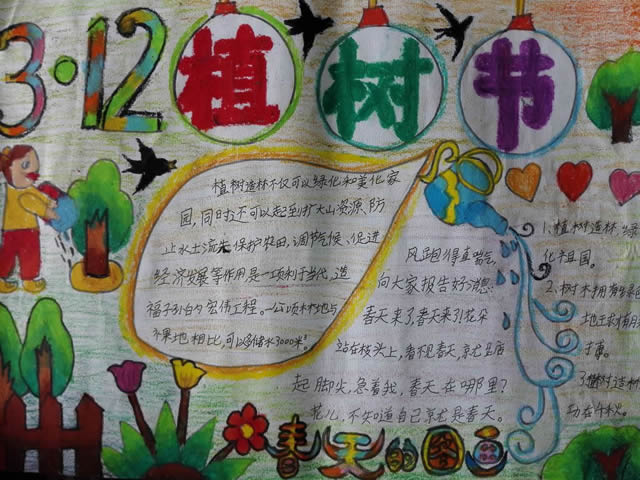 3·12 植树节
植树造林不仅可以绿化和美化家
园,同时还可以起到扩大山资源、防
止水土流失保护农田、调节气候、促进
经济发展等作用是一项利于当代、造
福子孙的宏伟工程。一公顷林地与
裸地相比,可以多储水3000米³
风跑得直喘气,
向大家报告好消息:
春天来了,春天来引花朵
站在枝头上,看不见春天,就
起脚尖,急着找,春天在哪里?
花儿,不知道自己就是春天。
1、植树造林,绿
化祖国。
2、树木拥
地
3、植树造林
功在千秋。
春天的图画